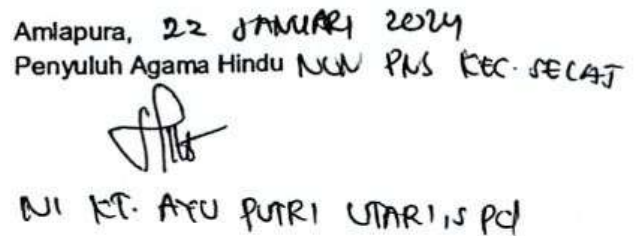 Amlapura, 22 JANUARI 2024
Penyuluh Agama Hindu NON PNS KEC. SELAT
NI KT. AYU PUTRI UTARI, S Pd